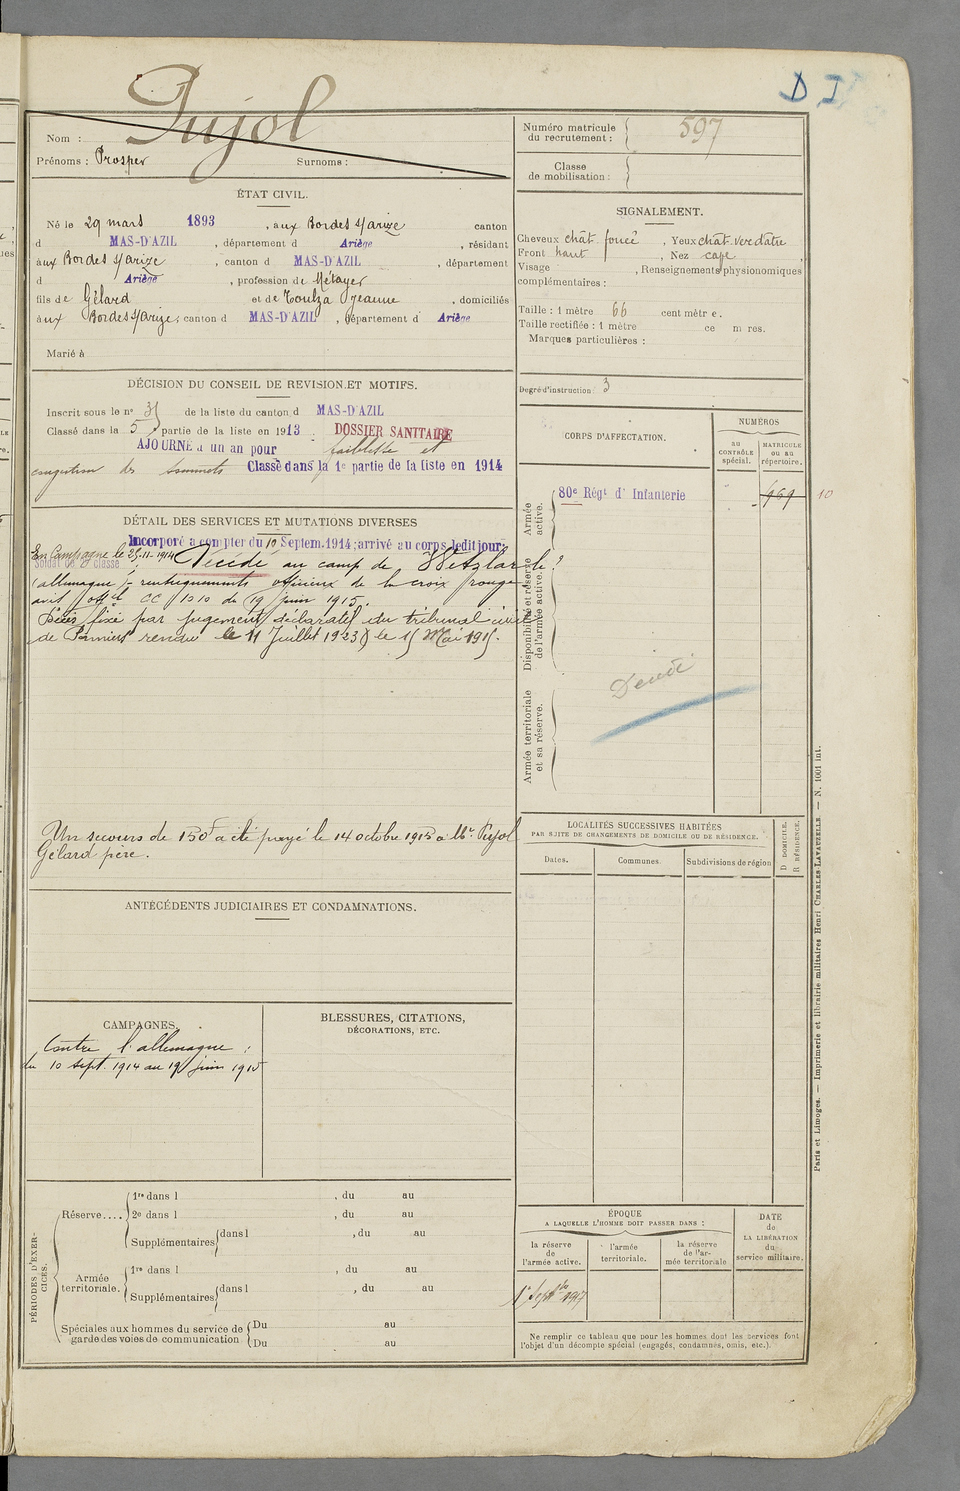 D I
Pujol
Nom :
Prénoms : Prosper Surnoms :
Numéro matricule du recrutement : 597
Classe de mobilisation :
ÉTAT CIVIL.
Né le 29 mars 1893, aux Bordes s/Arize canton
d MAS-D'AZIL, département d Ariège, résidant
aux Bordes s/Arize, canton d MAS-D'AZIL, département
d Ariège, profession de Métayer
fils de Gélard et de Toulza Jeanne, domiciliés
aux Bordes s/Arize, canton d MAS-D'AZIL, département d Ariège
Marié à
SIGNALEMENT.
Cheveux chât foncé, Yeux chât. verdâtre
Front haut, Nez cave
Visage , Renseignements physionomiques
complémentaires :
Taille : 1 mètre 66 centimètre.
Taille rectifiée : 1 mètre ce m res.
Marques particulières :
Degré d'instruction : 3
DÉCISION DU CONSEIL DE REVISION ET MOTIFS.
Inscrit sous le nº 31 de la liste du canton d MAS-D'AZIL
Classé dans la 5 partie de la liste en 1913. DOSSIER SANITAIRE
AJOURNÉ à un an pour faiblesse et
congestion des sommets Classé dans la 1e partie de la liste en 1914
DÉTAIL DES SERVICES ET MUTATIONS DIVERSES
Incorporé à compter du 10 Septem. 1914; arrivé au corps ledit jour;
Soldat de 2e classe
En Campagne le 25-11-1914 Décédé au camp de Wetzlar le ?
(allemagne) – renseignements officieux de la croix rouge
avis offel CC /1010 du 19 juin 1915.
Décès fixé par jugement déclaratif du tribunal civil
de Pamiers rendu le 11 Juillet 1923 le 15 Mai 1915.
Un secours de 150f a été payé le 14 octobre 1915 à Mr Pujol
Gélard père.
CORPS D'AFFECTATION.
NUMÉROS
au CONTRÔLE spécial.
MATRICULE ou au répertoire.
Armée active.
80e Régt d' Infanterie
969 10
Disponibilité et réserve de l'armée active.
Armée territoriale et sa réserve.
LOCALITÉS SUCCESSIVES HABITÉES
PAR SUITE DE CHANGEMENTS DE DOMICILE OU DE RÉSIDENCE.
Dates. Communes. Subdivisions de région
D DOMICILE.
R RÉSIDENCE.
ANTÉCÉDENTS JUDICIAIRES ET CONDAMNATIONS.
CAMPAGNES.
Contre l'allemagne :
du 10 sept. 1914 au 19 juin 1915
BLESSURES, CITATIONS,
DÉCORATIONS, ETC.
PÉRIODES D'EXERCICES.
Réserve....
1re dans l , du au
2e dans l , du au
Supplémentaires dans l , du au
Armée territoriale.
1re dans l , du au
Supplémentaires dans l , du au
Spéciales aux hommes du service de garde des voies de communication
Du au
Du au
ÉPOQUE
A LAQUELLE L'HOMME DOIT PASSER DANS :
la réserve de l'armée active.
l'armée territoriale.
la réserve de l'armée territoriale
DATE de LA LIBÉRATION du service militaire.
1er Septbre 1917
Ne remplir ce tableau que pour les hommes dont les services font
l'objet d'un décompte spécial (engagés, condamnés, omis, etc.).
Paris et Limoges. — Imprimerie et librairie militaires Henri CHARLES-LAVAUZELLE. — N. 1001 int.